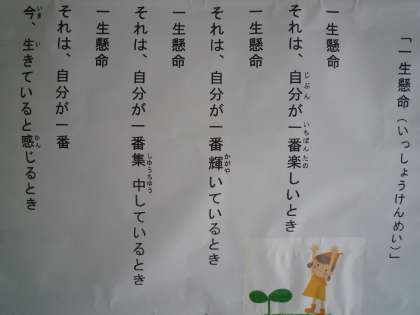 「一生懸命（いっしょうけんめい）」
一生懸命
それは、自分が一番楽しいとき
一生懸命
それは、自分が一番輝いているとき
一生懸命
それは、自分が一番集中しているとき
一生懸命
それは、自分が一番
今、生きていると感じるとき